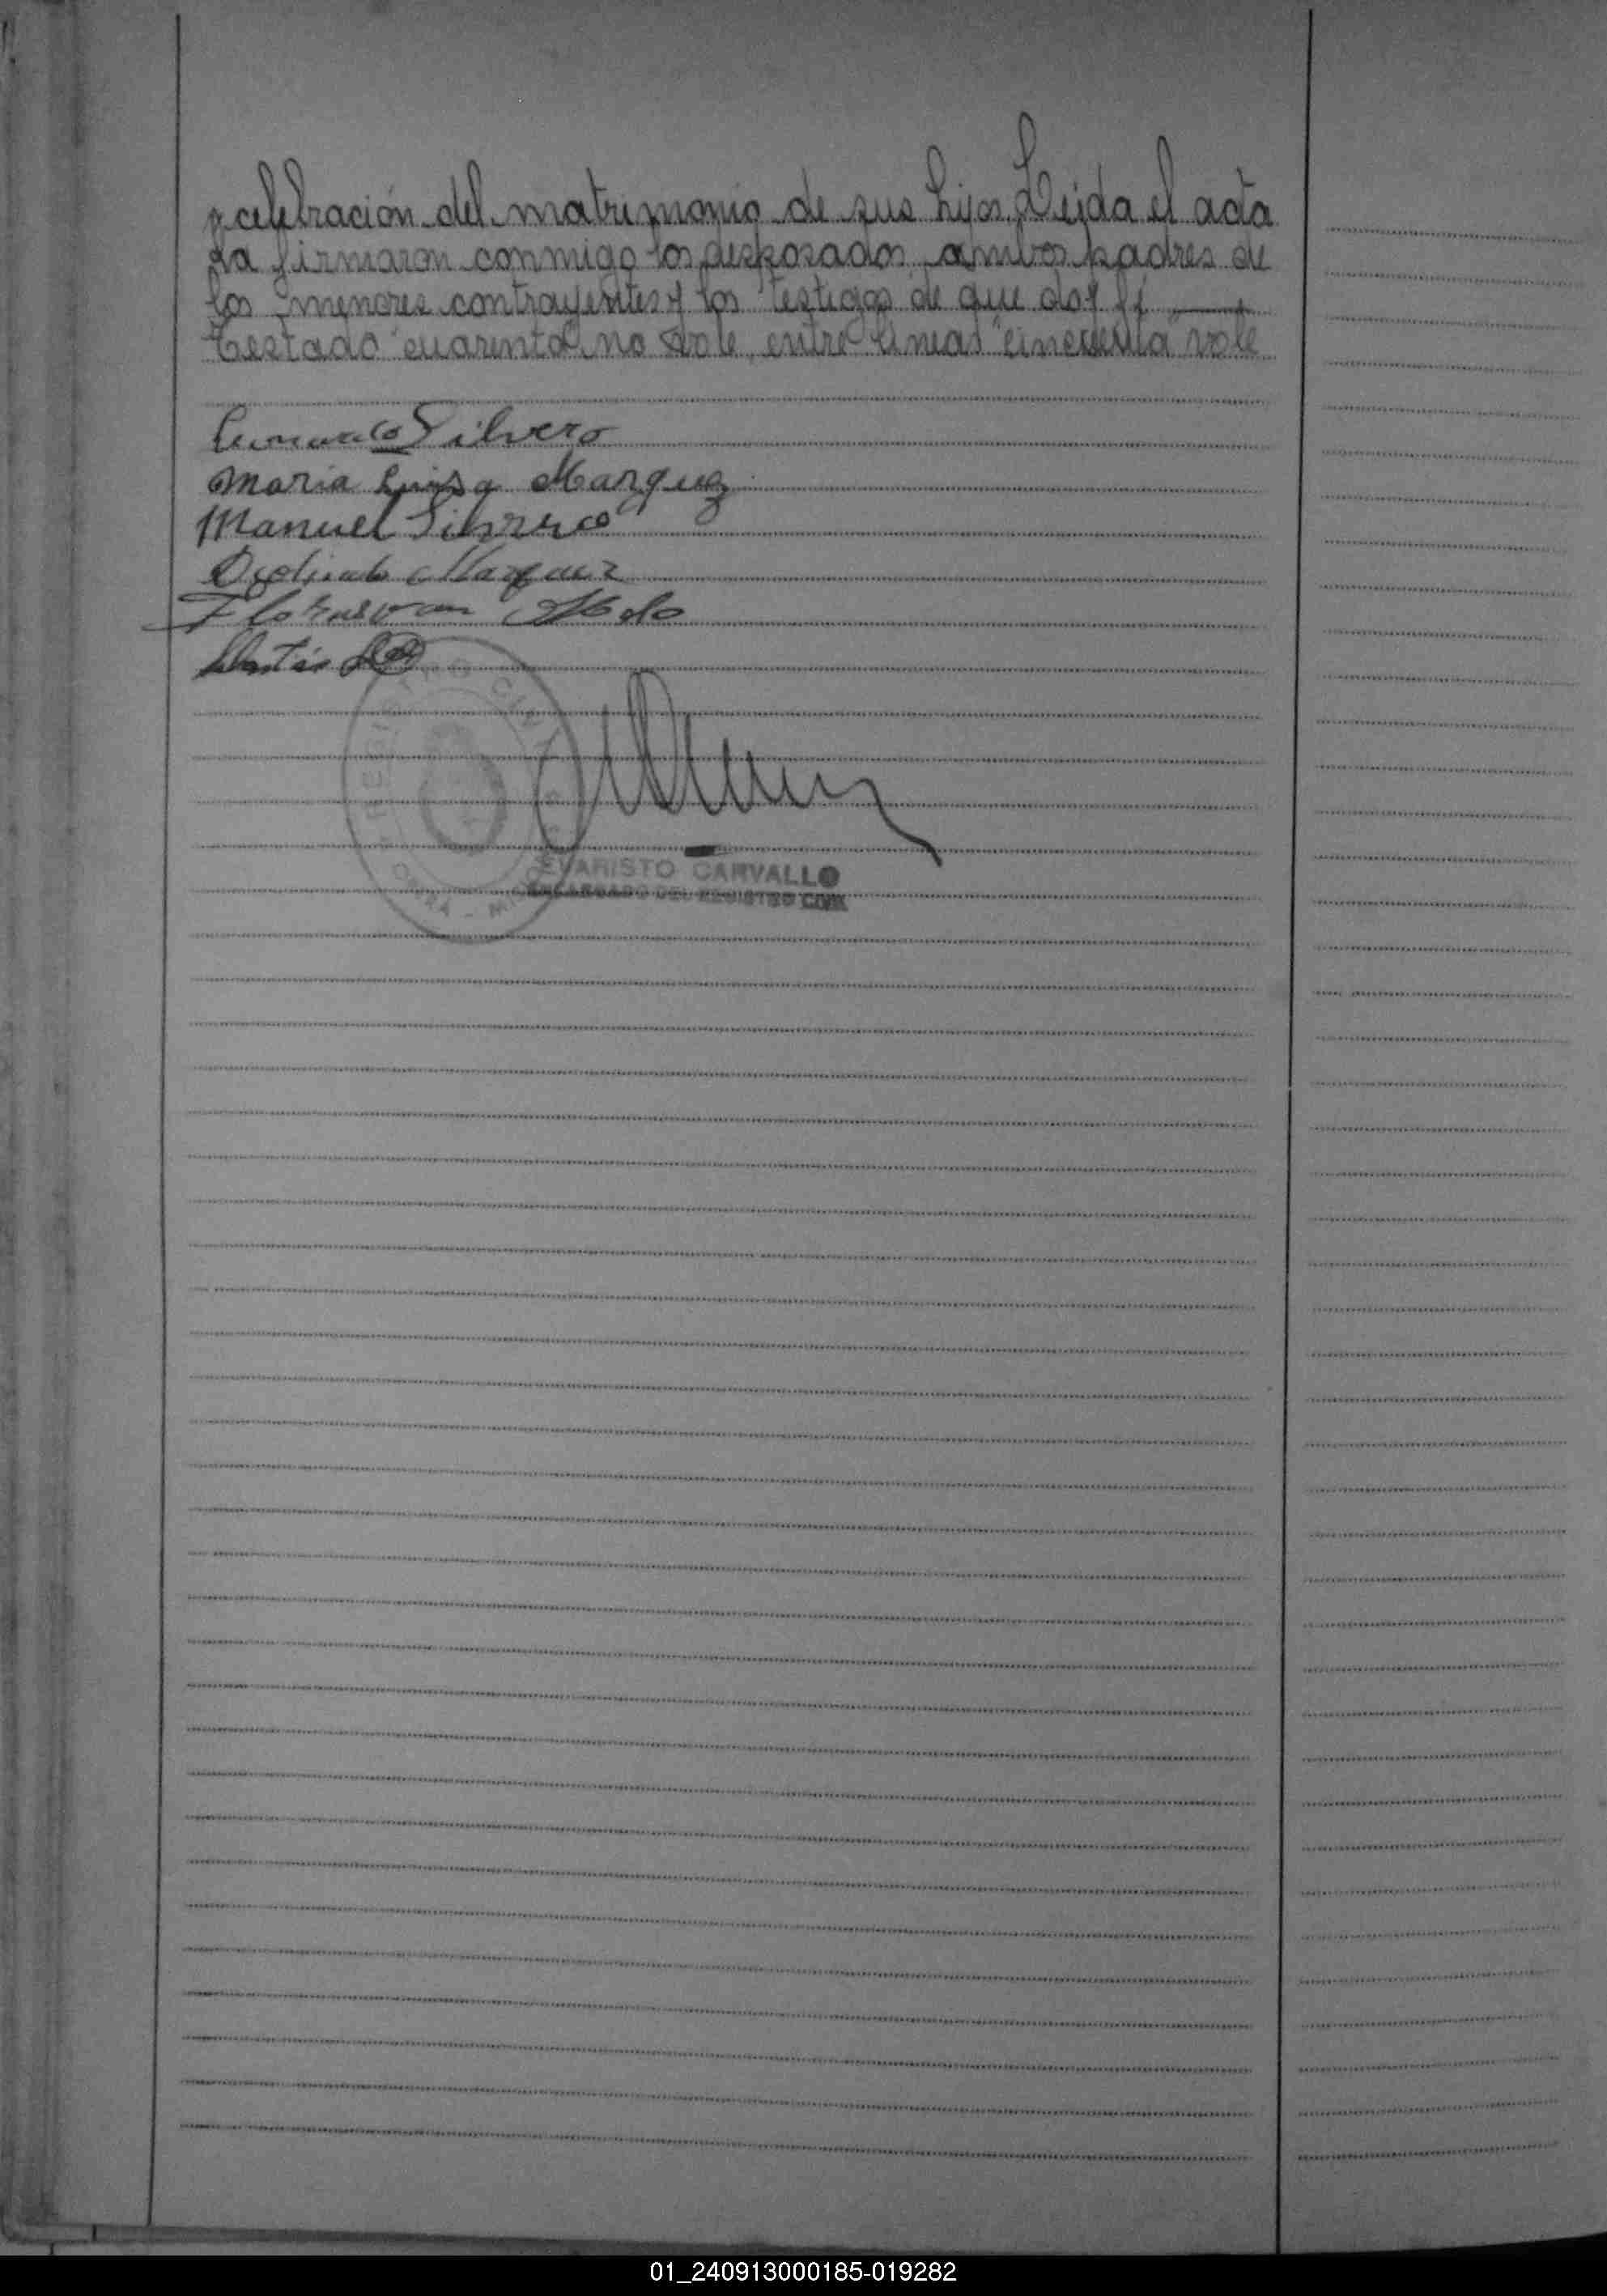 y celebración del matrimonio de sus hijos. Leida el acta
la firmaron conmigo los desposados, ambos padres de
los menores contrayentes y los testigos de que doy fé
Testado "cuarenta" no vale, entre lineas "cincuenta" vale
Silvero
Maria Luisa Marquez
Manuel Silvero
Marquez
Melo
REGISTRO CIVIL
OBERA - MISIONES
EVARISTO CARVALLO
ENCARGADO DEL REGISTRO CIVIL
01_240913000185-019282